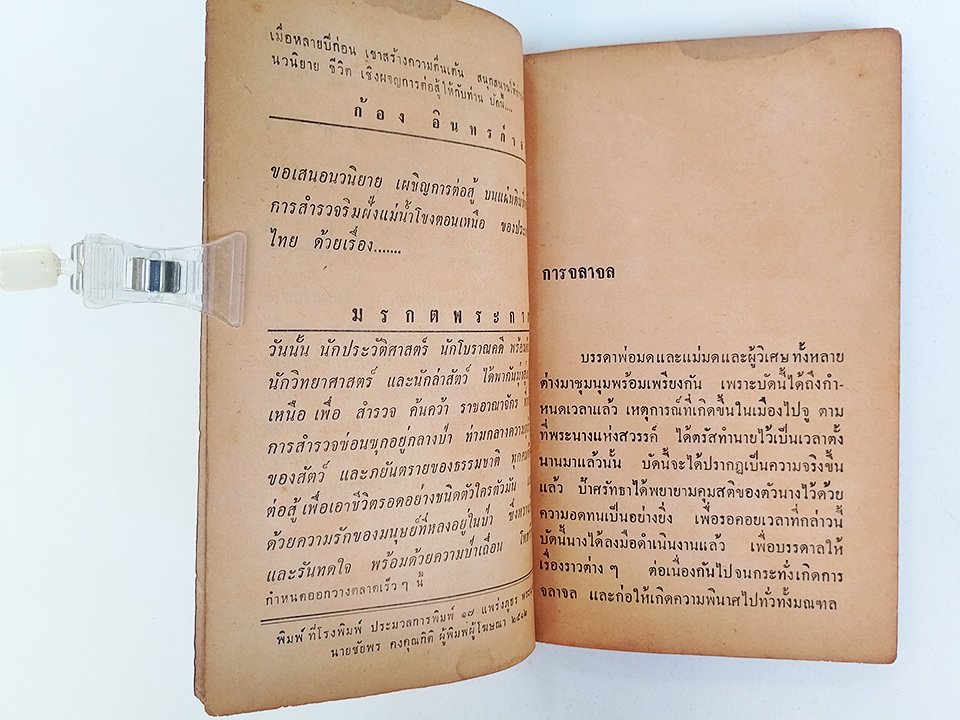 เมื่อหลายปีก่อน เขาสร้างความตื่นเต้น สนุกสนาน
นวนิยาย ชีวิต เชิงผจญการต่อสู้ ให้กับท่าน บัดนี้....
ก้อง อินทรกำ
ขอเสนอนวนิยาย เผชิญการต่อสู้ บนแผ่นดิน
การสำรวจริมฝั่งแม่น้ำโขงตอนเหนือ ของประ
ไทย ด้วยเรื่อง.......
มรกตพระกา
วันนั้น นักประวัติศาสตร์ นักโบราณคดี พร้อม
นักวิทยาศาสตร์ และนักล่าสัตว์ ได้พากันมุ่ง
เหนือ เพื่อ สำรวจ ค้นคว้า ราชอาณาจักร
การสำรวจซ่อนซุกอยู่กลางป่า ท่ามกลางความ
ของสัตว์ และภยันตรายของธรรมชาติ ทุกคน
ต่อสู้ เพื่อเอาชีวิตรอดอย่างชนิดตัวใครตัวมัน
ด้วยความรักของมนุษย์ที่หลงอยู่ในป่า ซึ่งหวาน
และรันทดใจ พร้อมด้วยความป่าเถื่อน
กำหนดออกวางตลาดเร็ว ๆ นี้
พิมพ์ ที่โรงพิมพ์ ประมวลการพิมพ์ ๑๗ แพร่งภูธร พระ
นายชัยพร คงคุณกิติ ผู้พิมพ์ผู้โฆษณา ๒๕๑๒
การจลาจล
บรรดาพ่อมดและแม่มดและผู้วิเศษ ทั้งหลาย
ต่างมาชุมนุมพร้อมเพรียงกัน เพราะบัดนี้ได้ถึงกำ-
หนดเวลาแล้ว เหตุการณ์ที่เกิดขึ้นในเมืองไปจู ตาม
ที่พระนางแห่งสวรรค์ ได้ตรัสทำนายไว้เป็นเวลาตั้ง
นานมาแล้วนั้น บัดนี้จะได้ปรากฏเป็นความจริงขึ้น
แล้ว ป้าศรัทธาได้พยายามคุมสติของตัวนางไว้ด้วย
ความอดทนเป็นอย่างยิ่ง เพื่อรอคอยเวลาที่กล่าวนี้
บัดนี้นางได้ลงมือดำเนินงานแล้ว เพื่อบรรดาลให้
เรื่องราวต่าง ๆ ต่อเนื่องกันไปจนกระทั่งเกิดการ
จลาจล และก่อให้เกิดความพินาศไปทั่วทั้งมณฑล